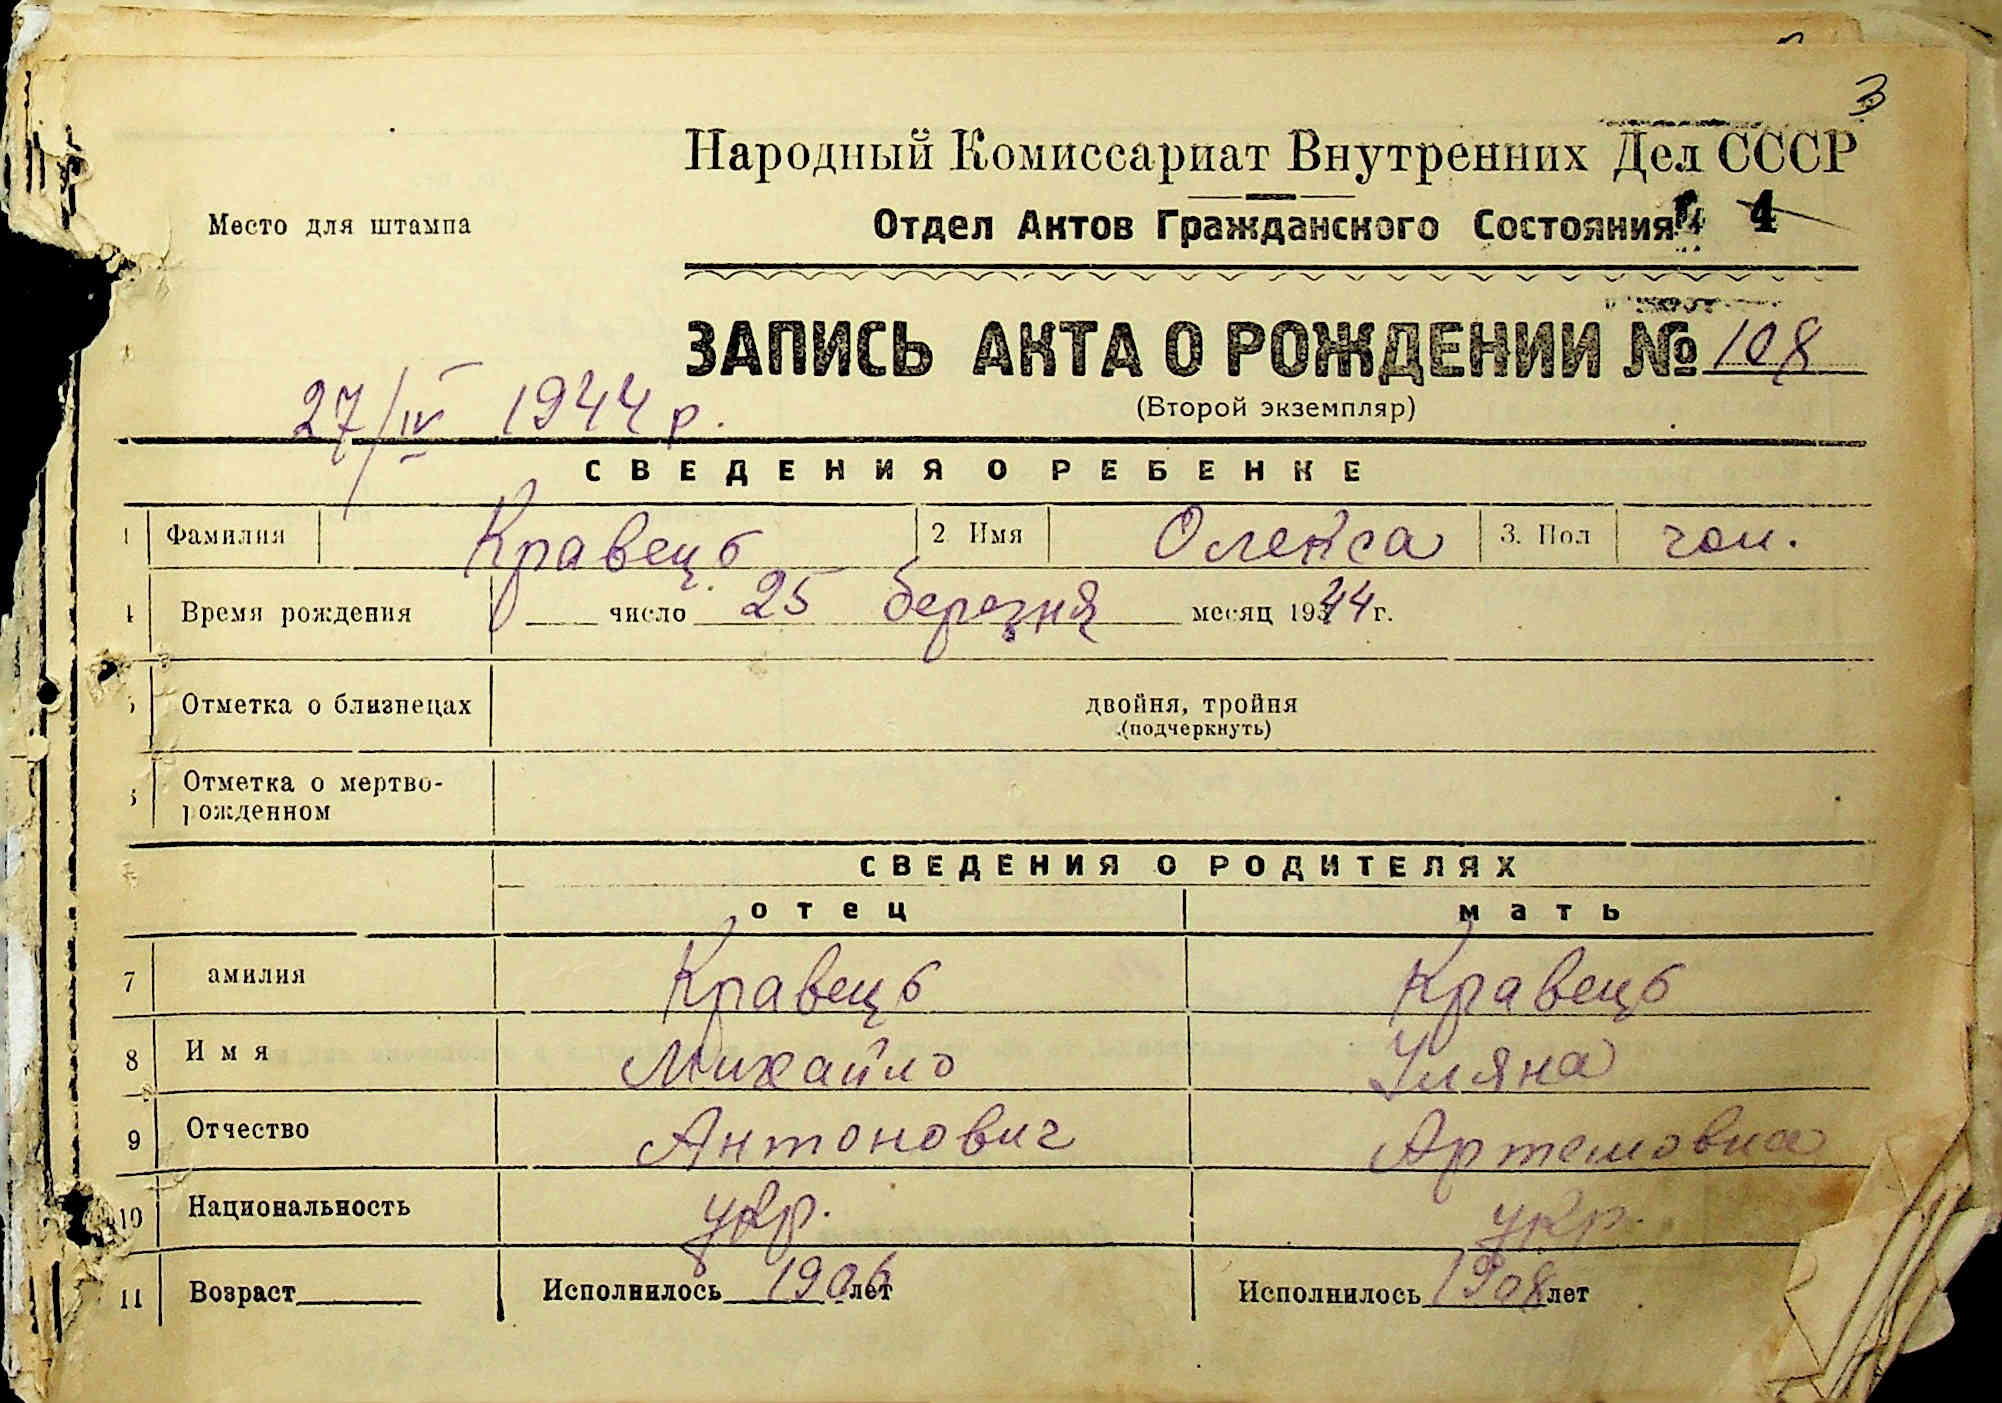 3
Народный Комиссариат Внутренних Дел СССР
Место для штампа
Отдел Актов Гражданского Состояния 4
ЗАПИСЬ АКТА О РОЖДЕНИИ № 108
27/IV 1944 р.
(Второй экземпляр)
СВЕДЕНИЯ О РЕБЕНКЕ
1 Фамилия Кравець 2 Имя Олекса 3. Пол чол.
4 Время рождения число 25 березня месяц 1944 г.
5 Отметка о близнецах двойня, тройня
(подчеркнуть)
6 Отметка о мертво-
рожденном
СВЕДЕНИЯ О РОДИТЕЛЯХ
отец мать
7 амилия Кравець Кравець
8 Имя Михайло Уляна
9 Отчество Антонович Артемовна
10 Национальность укр. укр.
11 Возраст Исполнилось 1906 лет Исполнилось 1908 лет